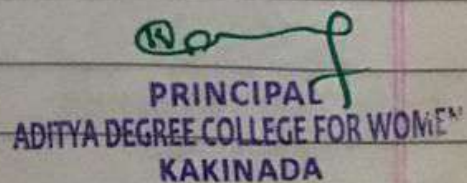 PRINCIPAL
ADITYA DEGREE COLLEGE FOR WOMEN
KAKINADA